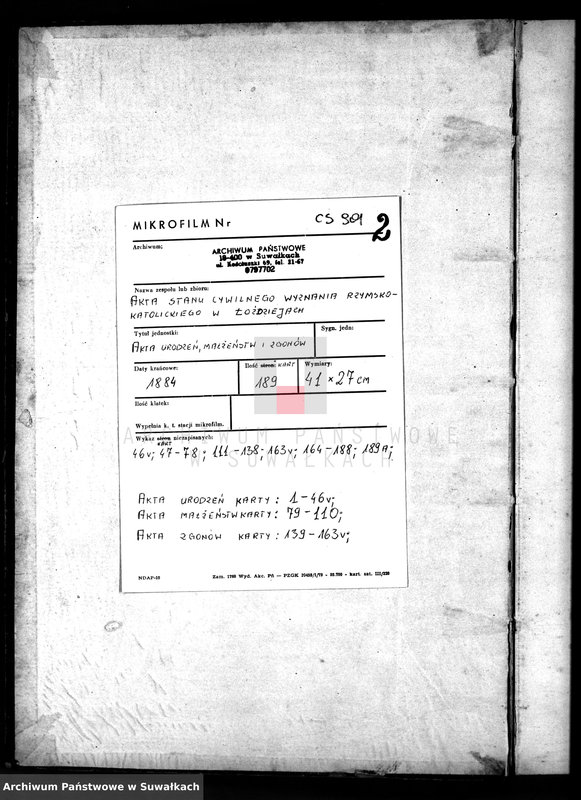 MIKROFILM Nr CS 901 2
Archiwum:
ARCHIWUM PAŃSTWOWE
16-400 w Suwałkach
ul. Kościuszki 69, tel. 21-67
9797702
Nazwa zespołu lub zbioru:
AKTA STANU CYWILNEGO WYZNANIA RZYMSKO-
KATOLICKIEGO W ŁOŹDZIEJACH
Tytuł jednostki:
Sygn. jedn:
AKTA URODZEŃ, MAŁŻEŃSTW I ZGONÓW
Daty krańcowe:
Ilość stron: KART
Wymiary:
1884
189
41 × 27 cm
Ilość klatek:
Wypełnia k. t. stacji mikrofilm.
Wykaz stron niezapisanych:
KART
46v; 47-78; 111-138; 163v; 164-188; 189A;
AKTA URODZEŃ KARTY: 1-46v;
AKTA MAŁŻEŃSTW KARTY: 79-110;
AKTA ZGONÓW KARTY: 139-163v;
NDAP-53
ARCHIWUM PAŃSTWOWE
W SUWAŁKACH
Archiwum Państwowe w Suwałkach